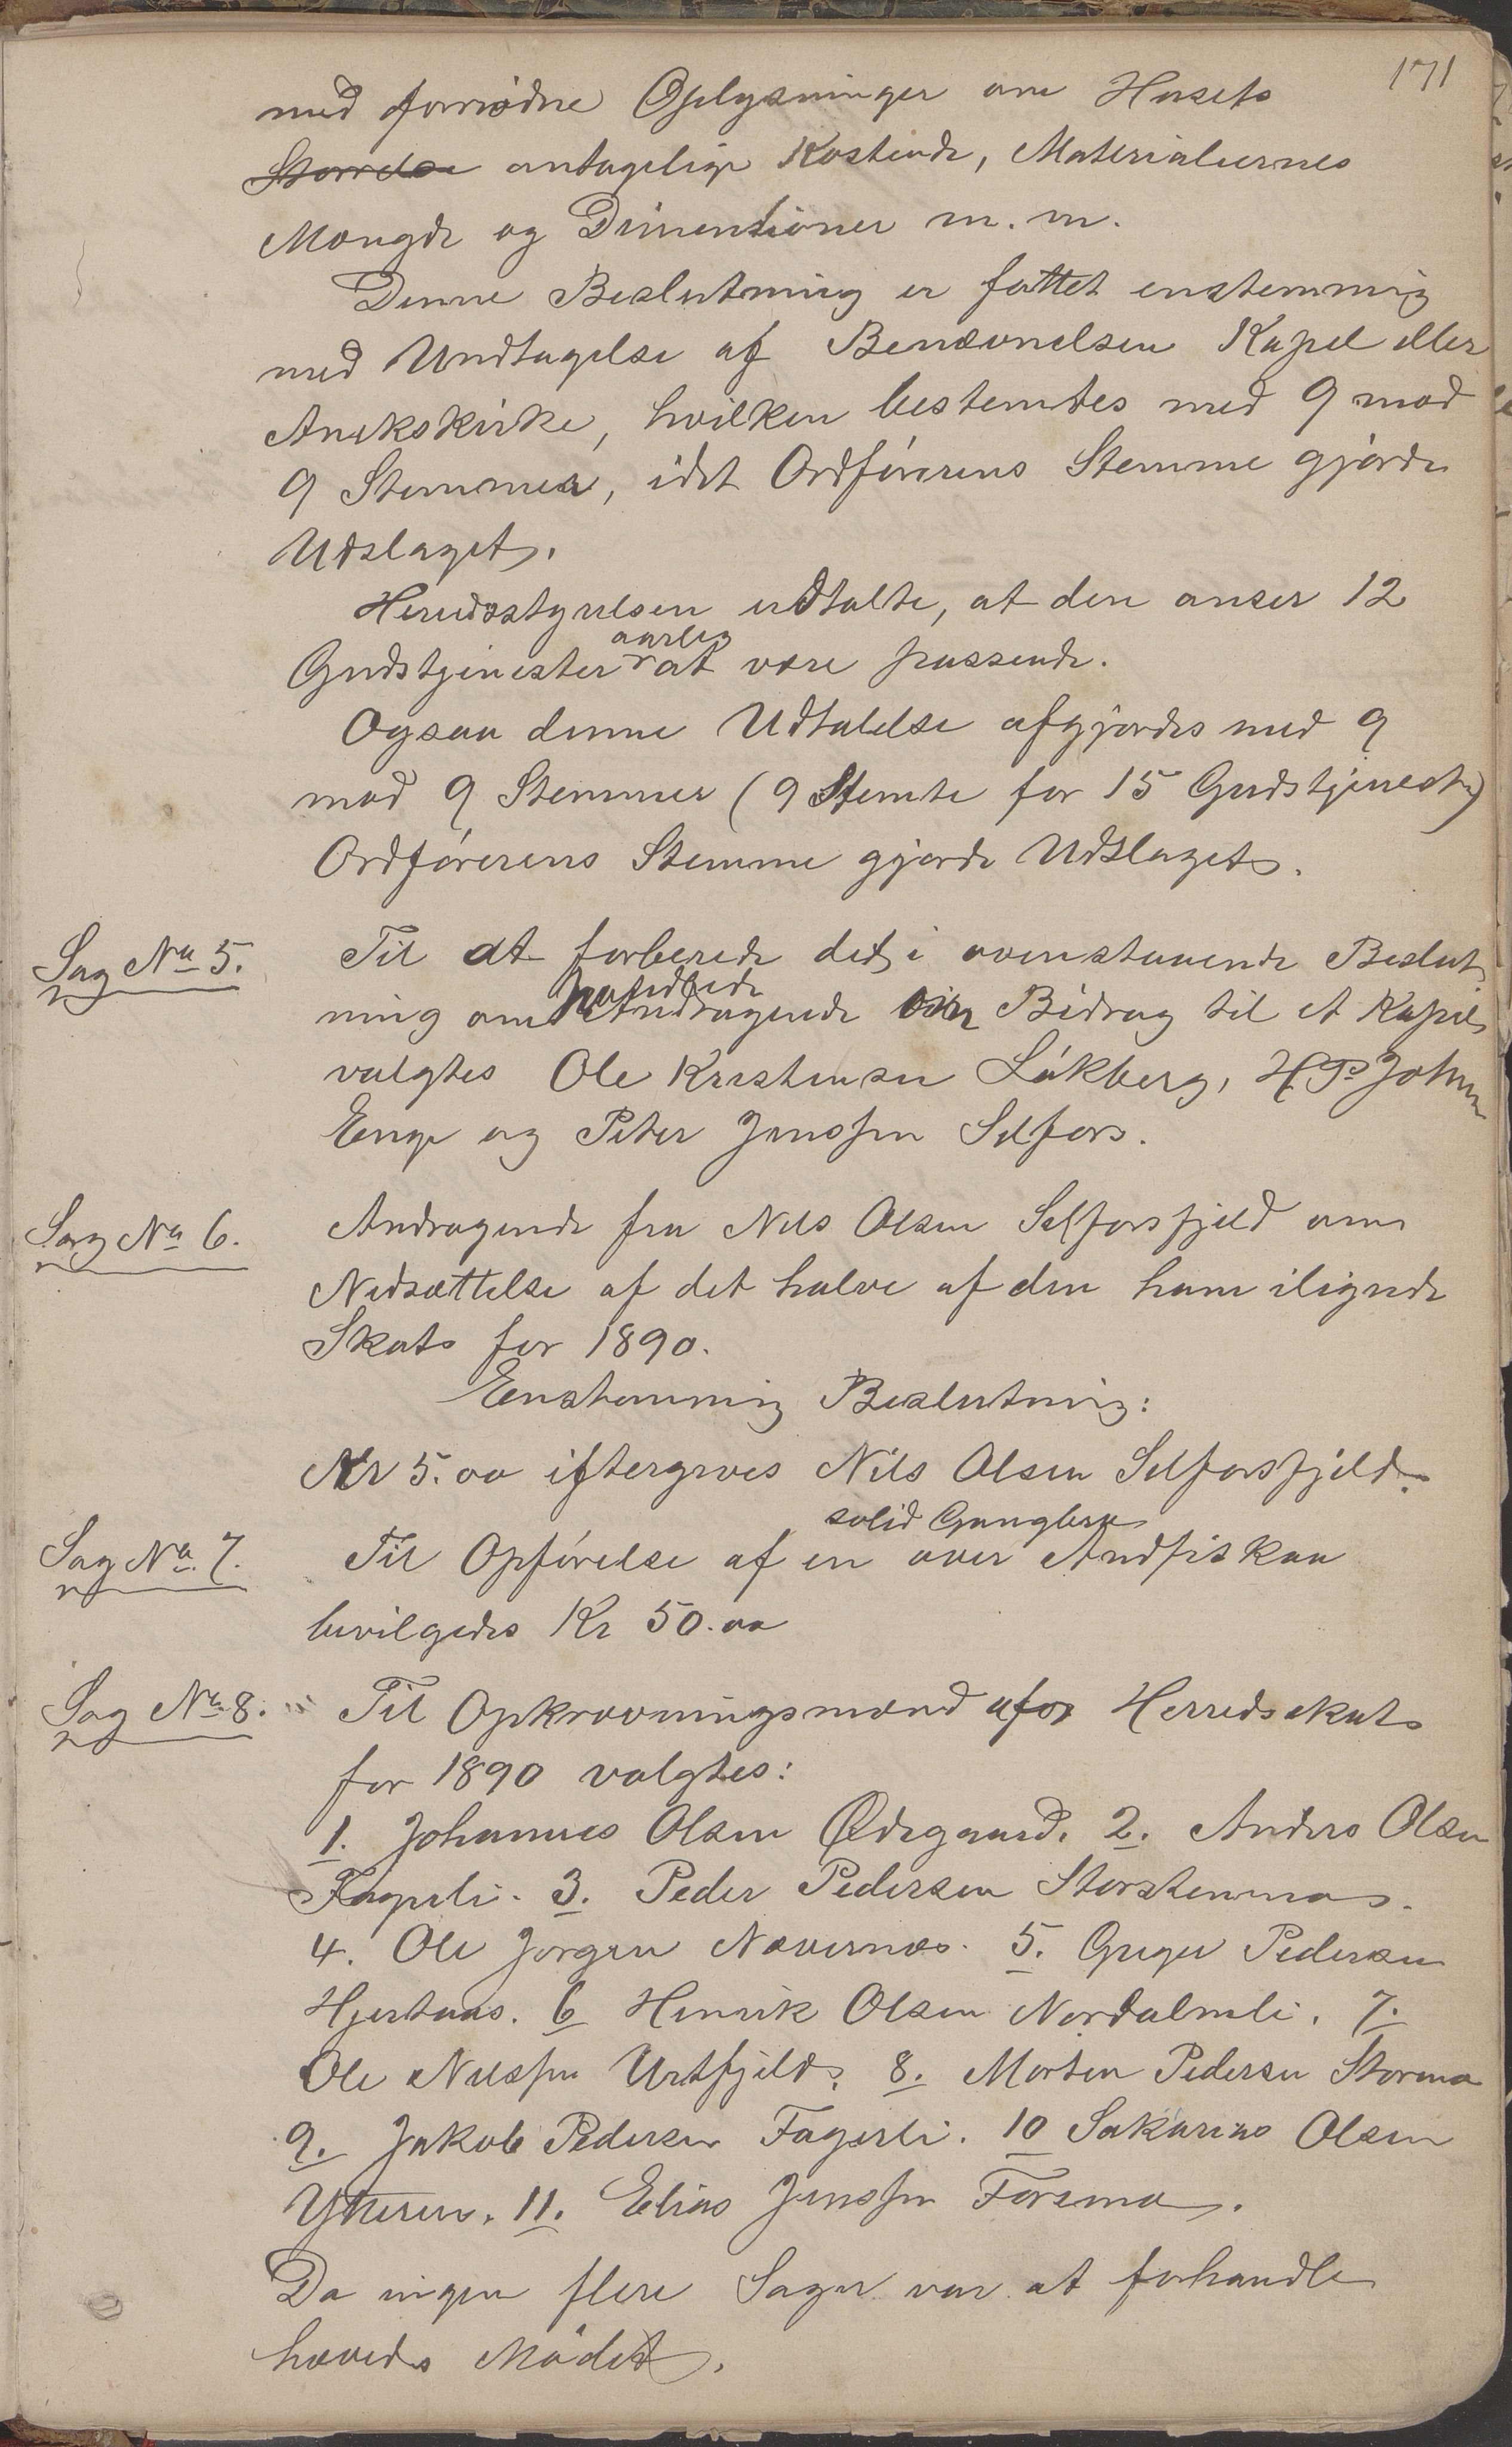 171
med fornødne Oplysninger om Husets
Størrelse antagelige Kostende, Materialiernes
Mængde og Dimentioner m. m.
Denne Beslutning er fattet enstemmig
med Undtagelse af Benævnelsen Kapel eller
Anekskirke, hvilken bestemtes med 9 mod
9 Stemmer, idet Ordførerens Stemme gjorde
Udslaget.
Herredsstyrelsen udtalte, at den anser 12
aarlig
Gudstjenester at være passende.
Ogsaa denne Udtalelse afgjordes med 9
mod 9 Stemmer (9 Stemte for 15 Gudstjenester)
Ordførerens Stemme gjorde Udslaget.
Sag No 5.
Til at forberede det i ovenstaaende Beslut
ning om Andragende Bidrag til et Kapel
valgtes Ole Kristensen Løkberg, H P Johan
Enge og Peter Jenssen Selfors.
Sag No 6.
Andragende fra Nils Olsen Selforsfjeld om
Nedsættelse af det halve af den ham ilignede
Skat for 1890.
Eenstemmig Beslutning:
Kr 5.00 eftergives Nils Olsen Selforsfjeld.
Sag No. 7.
solid Gangbro
Til Opførelse af en over Andfiskaa
bevilgedes Kr 50.00
Sag No 8.
Til Opkrævningsmænd for Herredsskat
for 1890 valgtes:
1. Johannes Olsen Ødegaard. 2. Anders Olsen
Fagerli. 3. Peder Pedersen Storstennæs.
4. Ole Jørgen Nævernæs. 5. Greger Pedersen
Hjertaas. 6 Henrik Olsen Nordalmli. 7.
Ole Nilssen Urtfjeld. 8. Morten Pedersen Storma
9. Jakob Pedersen Fagerli. 10 Sakarias Olsen
Ytteren. 11. Elias Jenssen Forsmo.
Da ingen flere Sager var at forhandle
hævedes Mødet.